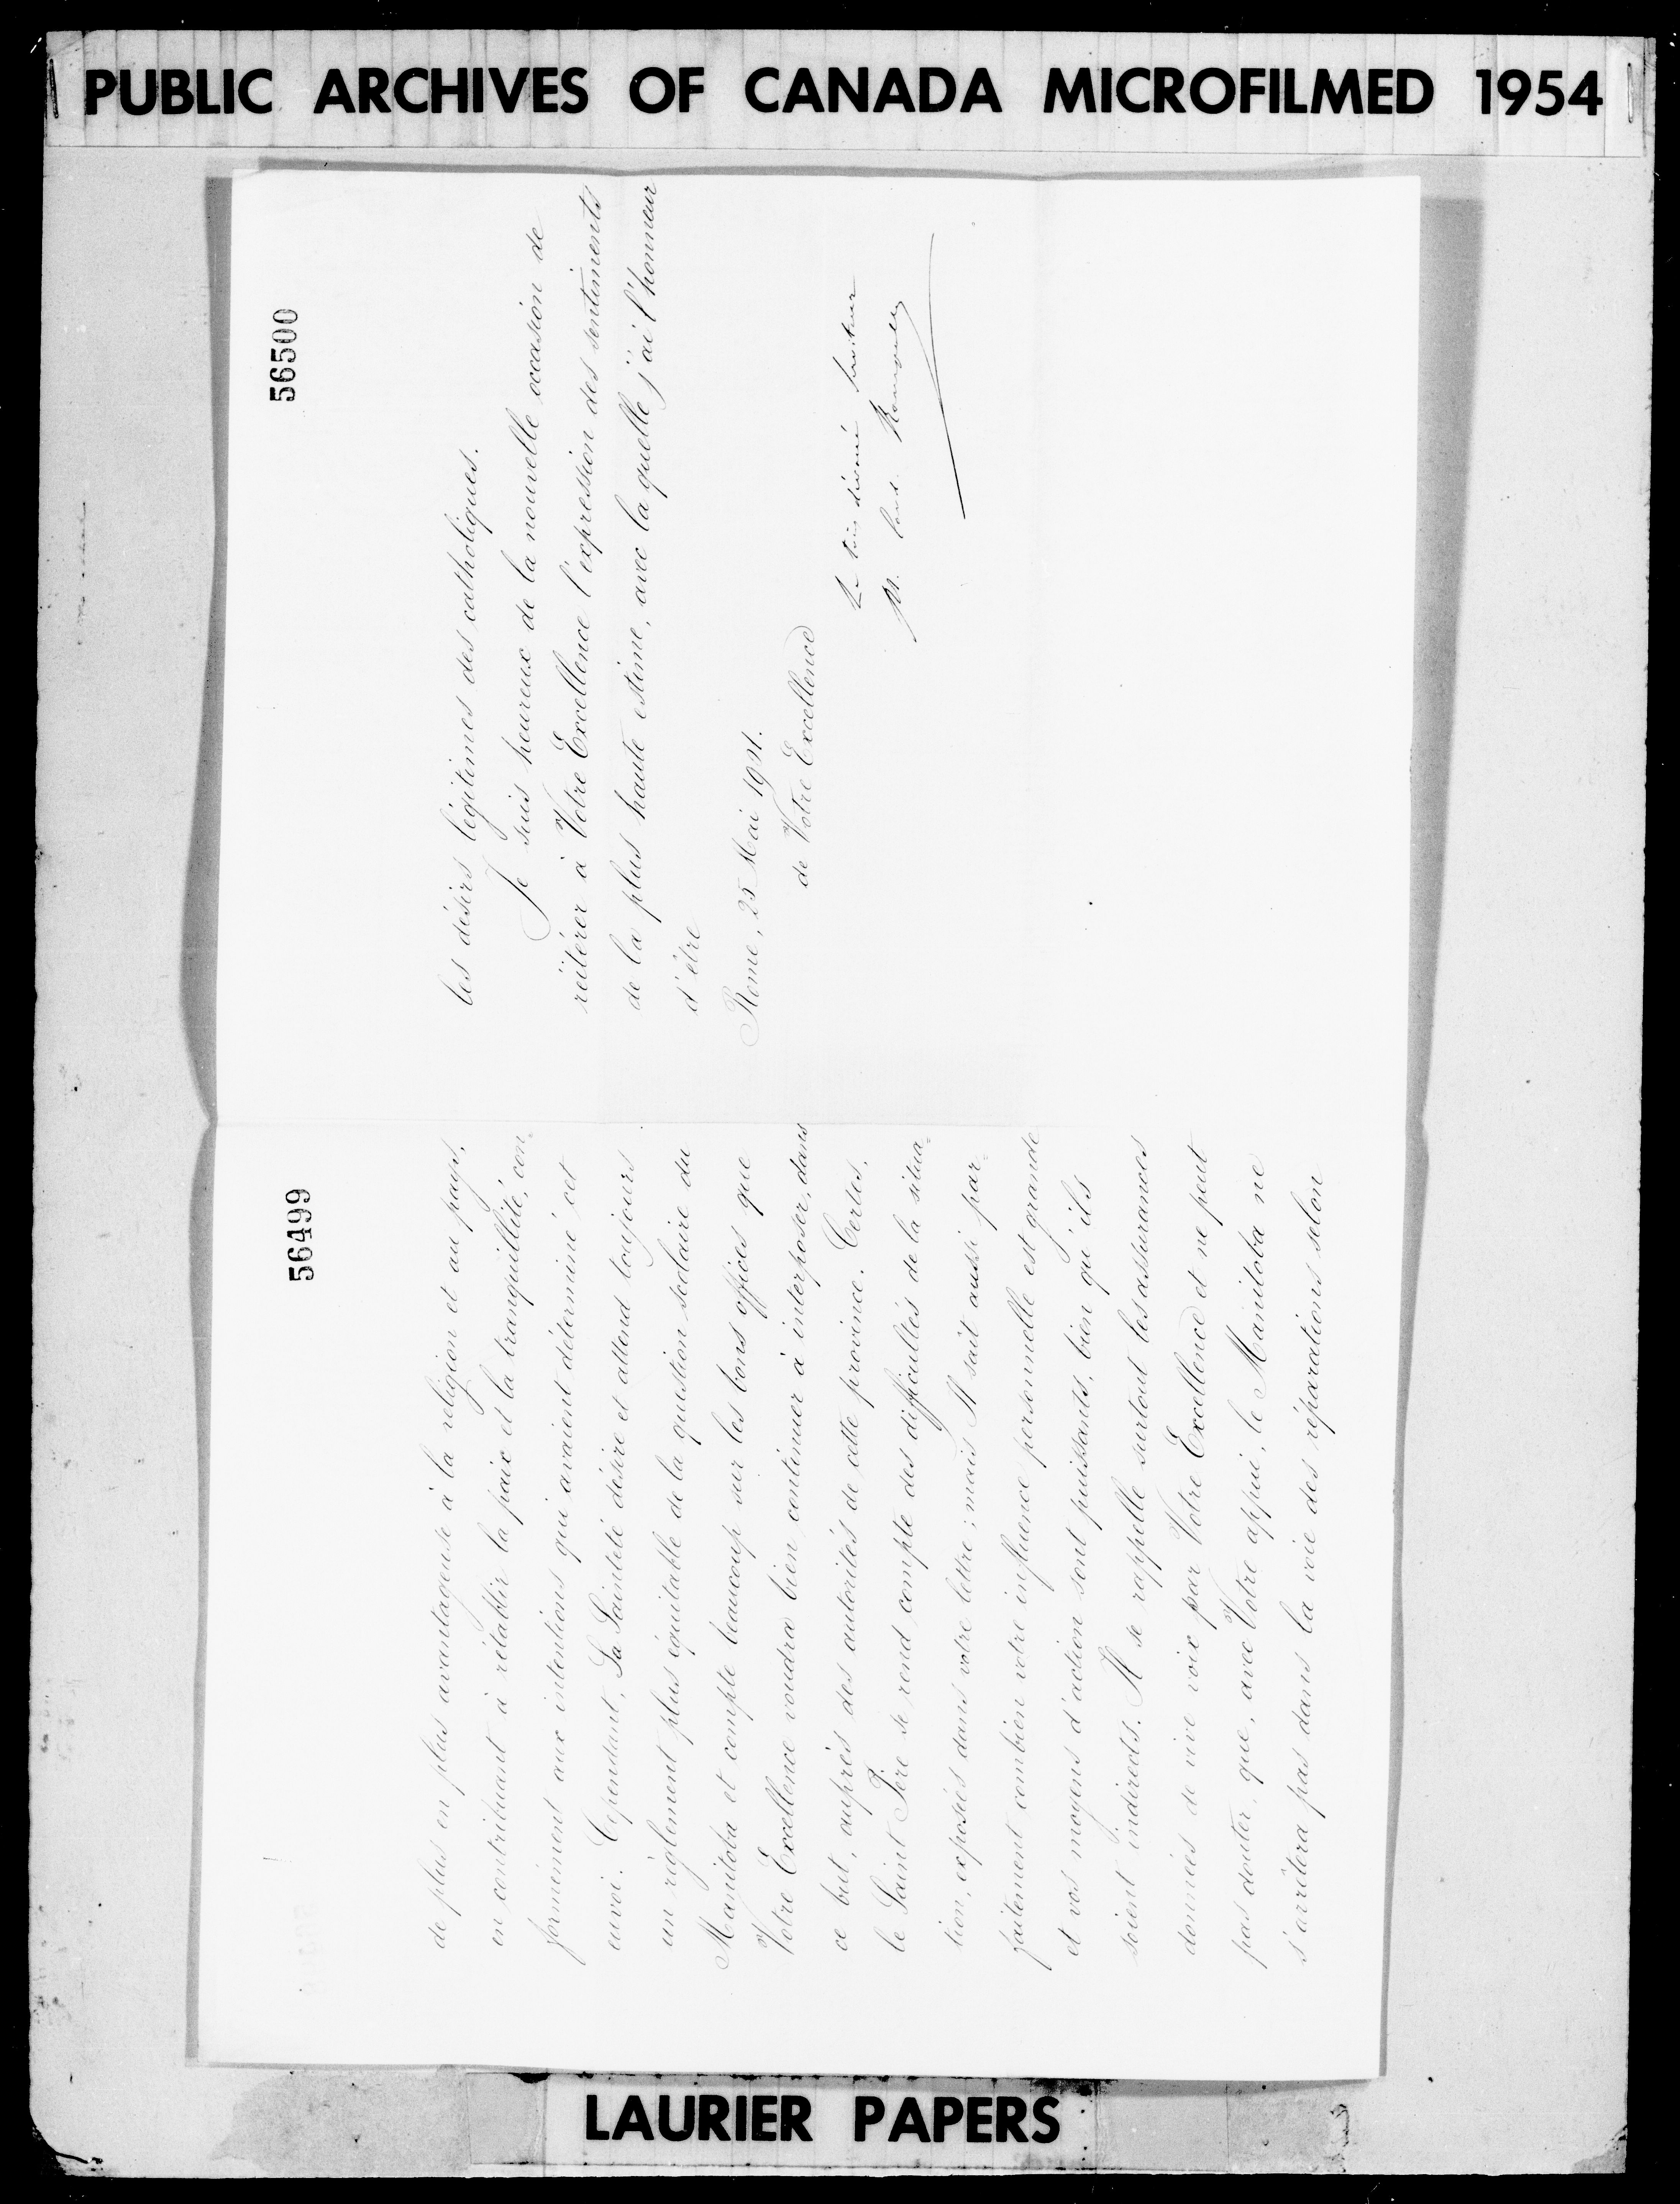 PUBLIC ARCHIVES OF CANADA MICROFILMED 1954
56499
de plus en plus avantageuse à la religion et au pays,
en contribuant à rétablir la paix et la tranquillité, con=
formément aux intentions qui avaient déterminé cet
envoi. Cependant, Sa Sainteté désire et attend toujours
un règlement plus équitable de la question scolaire du
Manitoba et compte beaucoup sur les bons offices que
Votre Excellence voudra bien continuer à interposer, dans
ce but, auprès des autorités de cette province. Certes,
le Saint Père se rend compte des difficultés de la situa=
tion, exposées dans votre lettre; mais Il sait aussi par=
faitement combien votre influence personnelle est grande
et vos moyens d'action sont puissants, bien qu'ils
soient indirects. Il se rappelle surtout les assurances
données de vive voix par Votre Excellence et ne peut
pas douter, que, avec Votre appui, le Manitoba ne
s'arrêtera pas dans la voie des réparations selon
56500
les désirs légitimes des catholiques.
Je suis heureux de la nouvelle occasion de
réitérer à Votre Excellence l'expression des sentiments
de la plus haute estime, avec la quelle j'ai l'honneur
d'être
Rome, 25 Mai 1901.
de Votre Excellence
Le très dévoué Serviteur
M. Card. Rampolla
LAURIER PAPERS